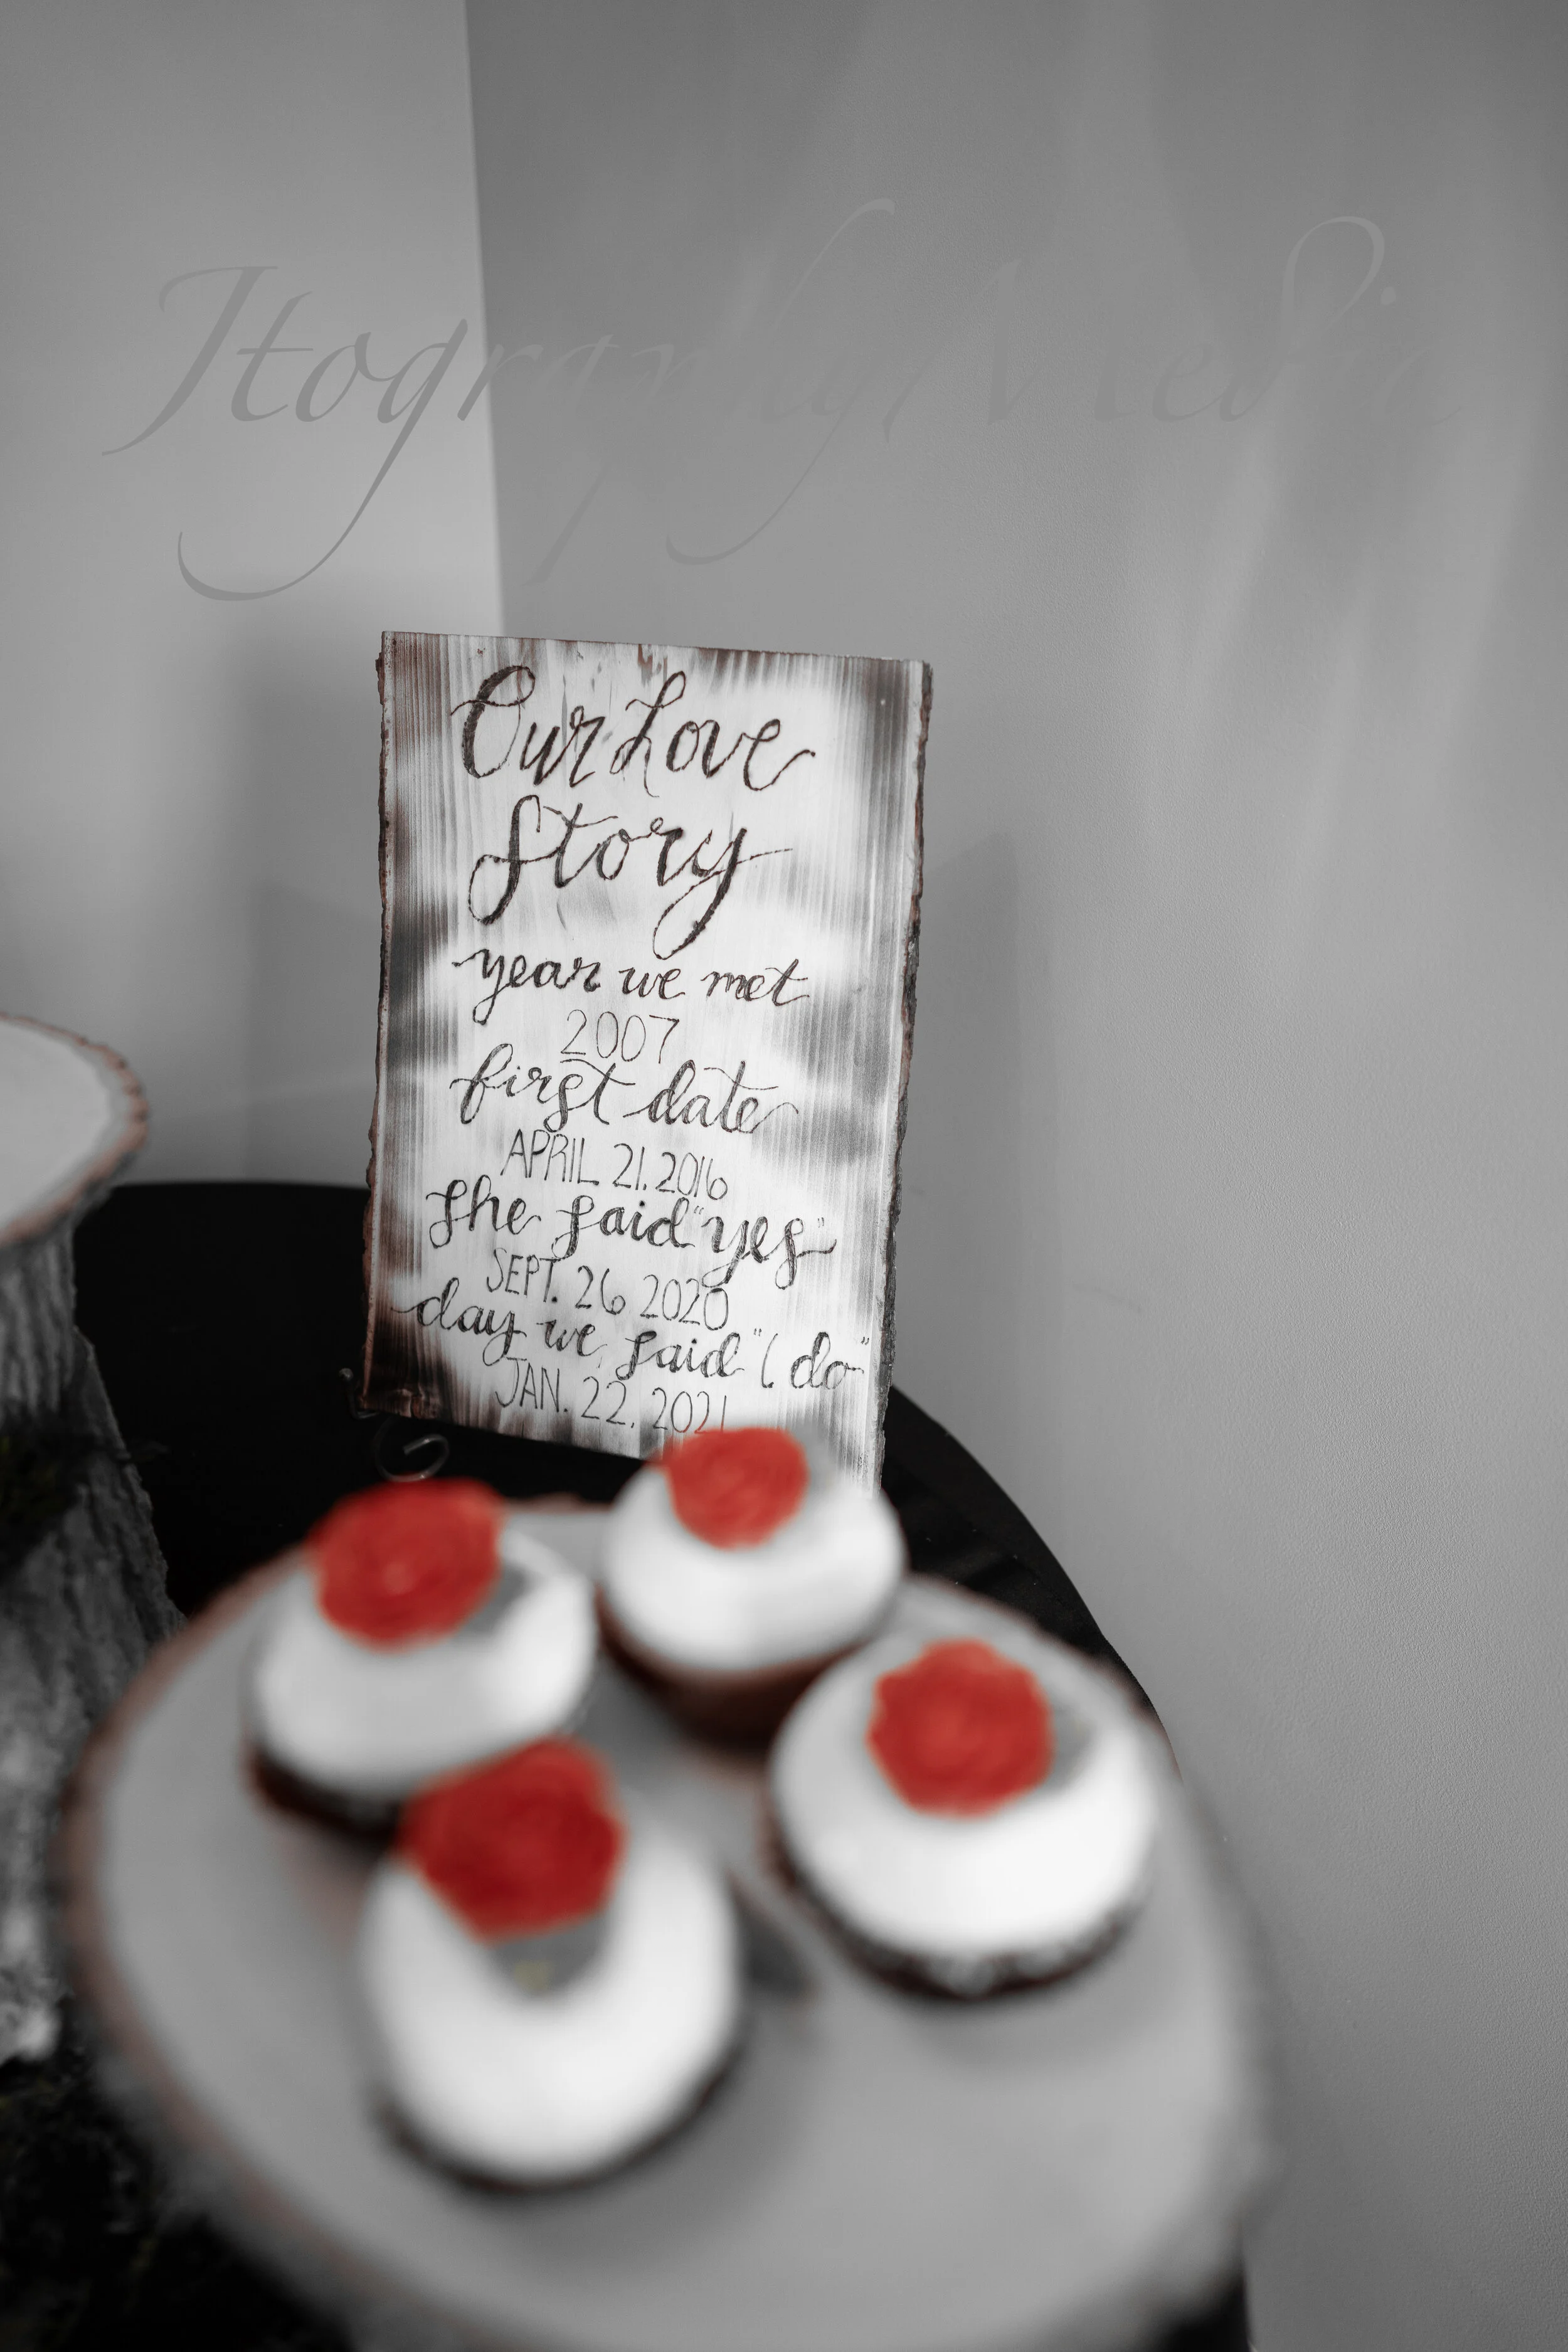 Jtography Media
Our Love
Story
year we met
2007
first date
APRIL 21. 2016
She said "yes"
SEPT. 26 2020
day we said "I do"
JAN. 22. 2021